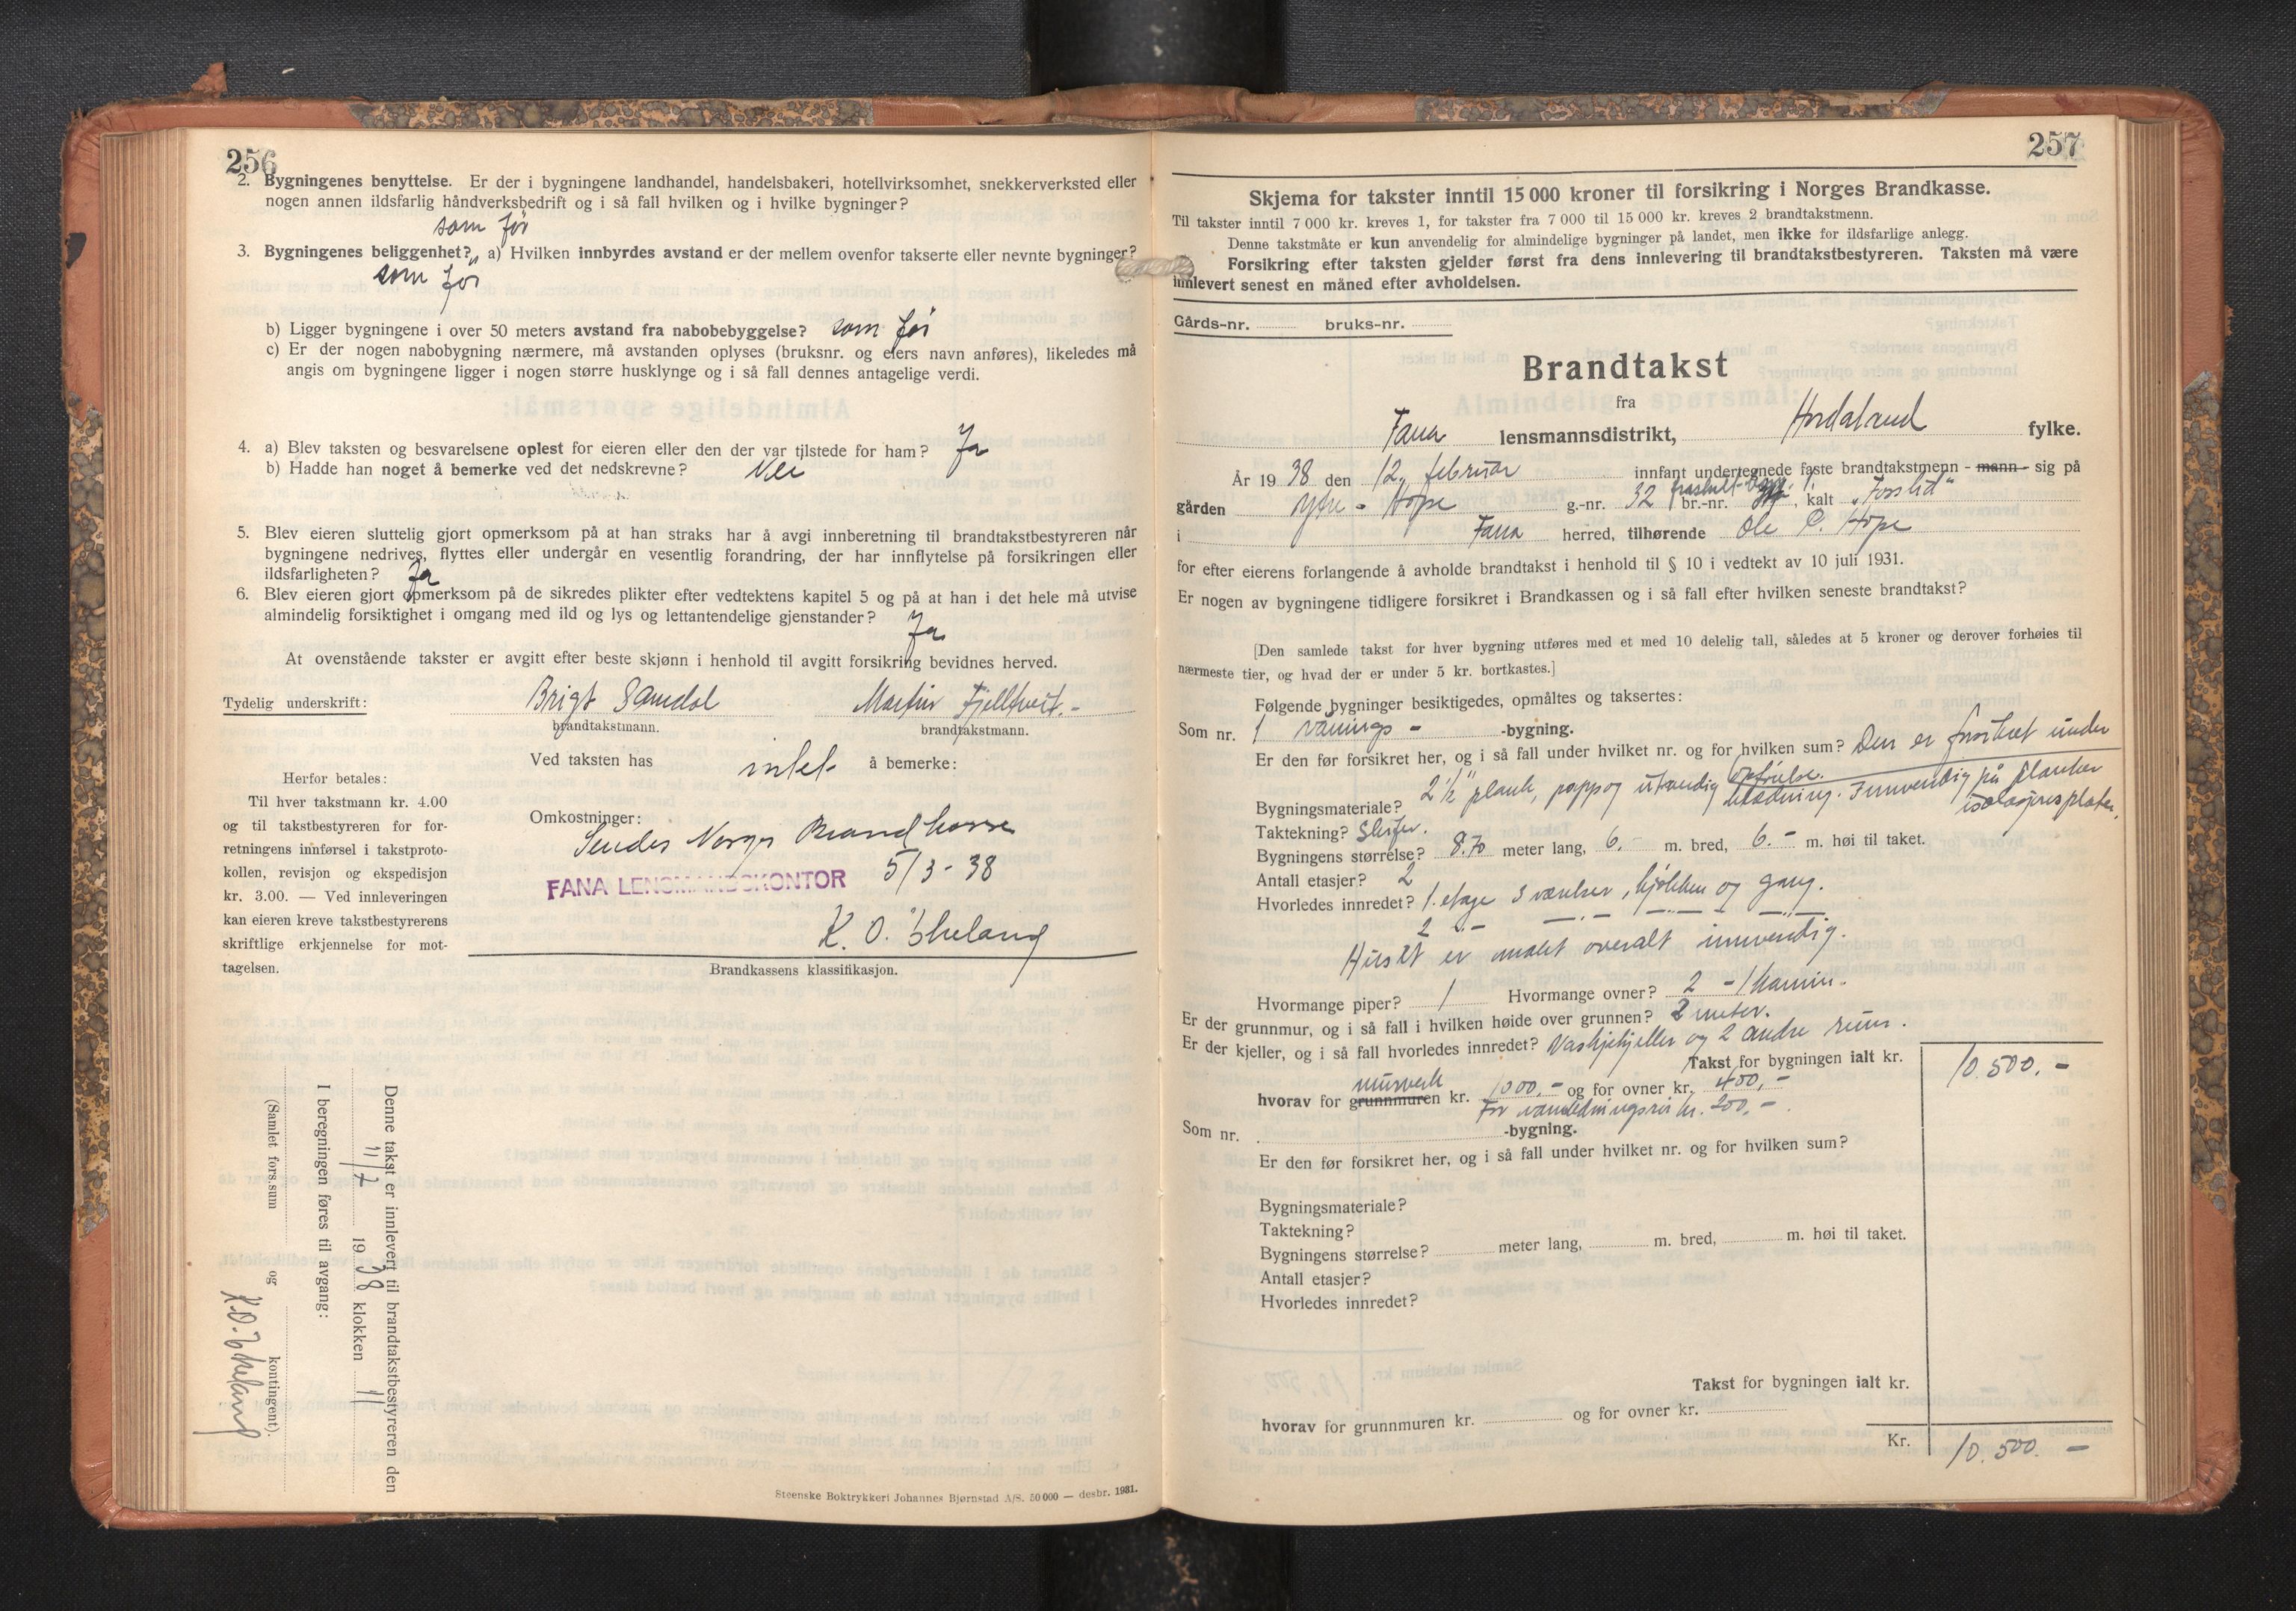 256
2. Bygningenes benyttelse. Er der i bygningene landhandel, handelsbakeri, hotellvirksomhet, snekkerverksted eller
nogen annen ildsfarlig håndverksbedrift og i så fall hvilken og i hvilke bygninger?
som før
3. Bygningenes beliggenhet? a) Hvilken innbyrdes avstand er der mellem ovenfor takserte eller nevnte bygninger?
som før
b) Ligger bygningene i over 50 meters avstand fra nabobebyggelse? som før
c) Er der nogen nabobygning nærmere, må avstanden oplyses (bruksnr. og eiers navn anføres), likeledes må
angis om bygningene ligger i nogen større husklynge og i så fall dennes antagelige verdi.
4. a) Blev taksten og besvarelsene oplest for eieren eller den der var tilstede for ham? Ja
b) Hadde han noget å bemerke ved det nedskrevne? Nei
5. Blev eieren sluttelig gjort opmerksom på at han straks har å avgi innberetning til brandtakstbestyreren når
bygningene nedrives, flyttes eller undergår en vesentlig forandring, der har innflytelse på forsikringen eller
ildsfarligheten? Ja
6. Blev eieren gjort opmerksom på de sikredes plikter efter vedtektens kapitel 5 og på at han i det hele må utvise
almindelig forsiktighet i omgang med ild og lys og lettantendelige gjenstander? Ja
At ovenstående takster er avgitt efter beste skjønn i henhold til avgitt forsikring bevidnes herved.
Tydelig underskrift: Brigt Samdal Martin Fjelltveit.-
brandtakstmann. brandtakstmann.
Ved taksten has intet å bemerke:
Herfor betales:
Til hver takstmann kr. 4.00
og til takstbestyreren for for-
retningens innførsel i takstproto-
kollen, revisjon og ekspedisjon
kr. 3.00. — Ved innleveringen
kan eieren kreve takstbestyrerens
skriftlige erkjennelse for mot-
tagelsen.
Omkostninger:
Sendes Norges Brandkasse
FANA LENSMANDSKONTOR 5/3-38
K. O.
Brandkassens klassifikasjon.
Denne takst er innlevert til brandtakstbestyreren den
11/7 1938 klokken 11
I beregningen føres til avgang:
(Samlet fors.sum og kontingent).
K.O.
Steenske Boktrykkeri Johannes Bjørnstad A/S. 50 000 — desbr. 1931.
257
Skjema for takster inntil 15 000 kroner til forsikring i Norges Brandkasse.
Til takster inntil 7 000 kr. kreves 1, for takster fra 7 000 til 15 000 kr. kreves 2 brandtakstmenn.
Denne takstmåte er kun anvendelig for almindelige bygninger på landet, men ikke for ildsfarlige anlegg.
Forsikring efter taksten gjelder først fra dens innlevering til brandtakstbestyreren. Taksten må være
innlevert senest en måned efter avholdelsen.
Gårds-nr. bruks-nr.
Brandtakst
fra
Fana lensmannsdistrikt, Hordaland fylke.
År 1938 den 12. februar innfant undertegnede faste brandtakstmenn - mann - sig på
gården Ytre - Hope g.-nr. 32 fraskilt br.-nr. kalt „Fosslid"
i Fana herred, tilhørende Ole C. Hope
for efter eierens forlangende å avholde brandtakst i henhold til § 10 i vedtekt av 10 juli 1931.
Er nogen av bygningene tidligere forsikret i Brandkassen og i så fall efter hvilken seneste brandtakst?
[Den samlede takst for hver bygning utføres med et med 10 delelig tall, således at 5 kroner og derover forhøies til
nærmeste tier, og hvad der er under 5 kr. bortkastes.]
Følgende bygninger besiktigedes, opmåltes og taksertes:
Som nr. 1 Vånings - -bygning.
Er den før forsikret her, og i så fall under hvilket nr. og for hvilken sum? Den er forsikret under
opførelse.
Bygningsmateriale? 2½" plank, papp og utvendig kledning. Innvendig på planker
isolasjonsplater.
Taktekning? Skifer.
Bygningens størrelse? 8.70 meter lang, 6.- m. bred, 6.- m. høi til taket.
Antall etasjer? 2
Hvorledes innredet? 1. etage 3 værelser, kjøkken og gang.
2 -"- — " — — " — — " —
Huset er malet overalt innvendig.
Hvormange piper? 1 Hvormange ovner? 2 - 1 kamin.
Er der grunnmur, og i så fall i hvilken høide over grunnen? 2 meter.
Er der kjeller, og i så fall hvorledes innredet? Vaskekjeller og 2 andre rum.
Takst for bygningen ialt kr. 10.500.-
murverk
hvorav for grunnmuren kr. 1000,- og for ovner kr. 400,-
For vannledningsrør kr. 200,-
Som nr. -bygning.
Er den før forsikret her, og i så fall under hvilket nr. og for hvilken sum?
Bygningsmateriale?
Taktekning?
Bygningens størrelse? meter lang, m. bred, m. høi til taket.
Antall etasjer?
Hvorledes innredet?
Takst for bygningen ialt kr.
hvorav for grunnmuren kr. og for ovner kr.
Kr. 10.500.-